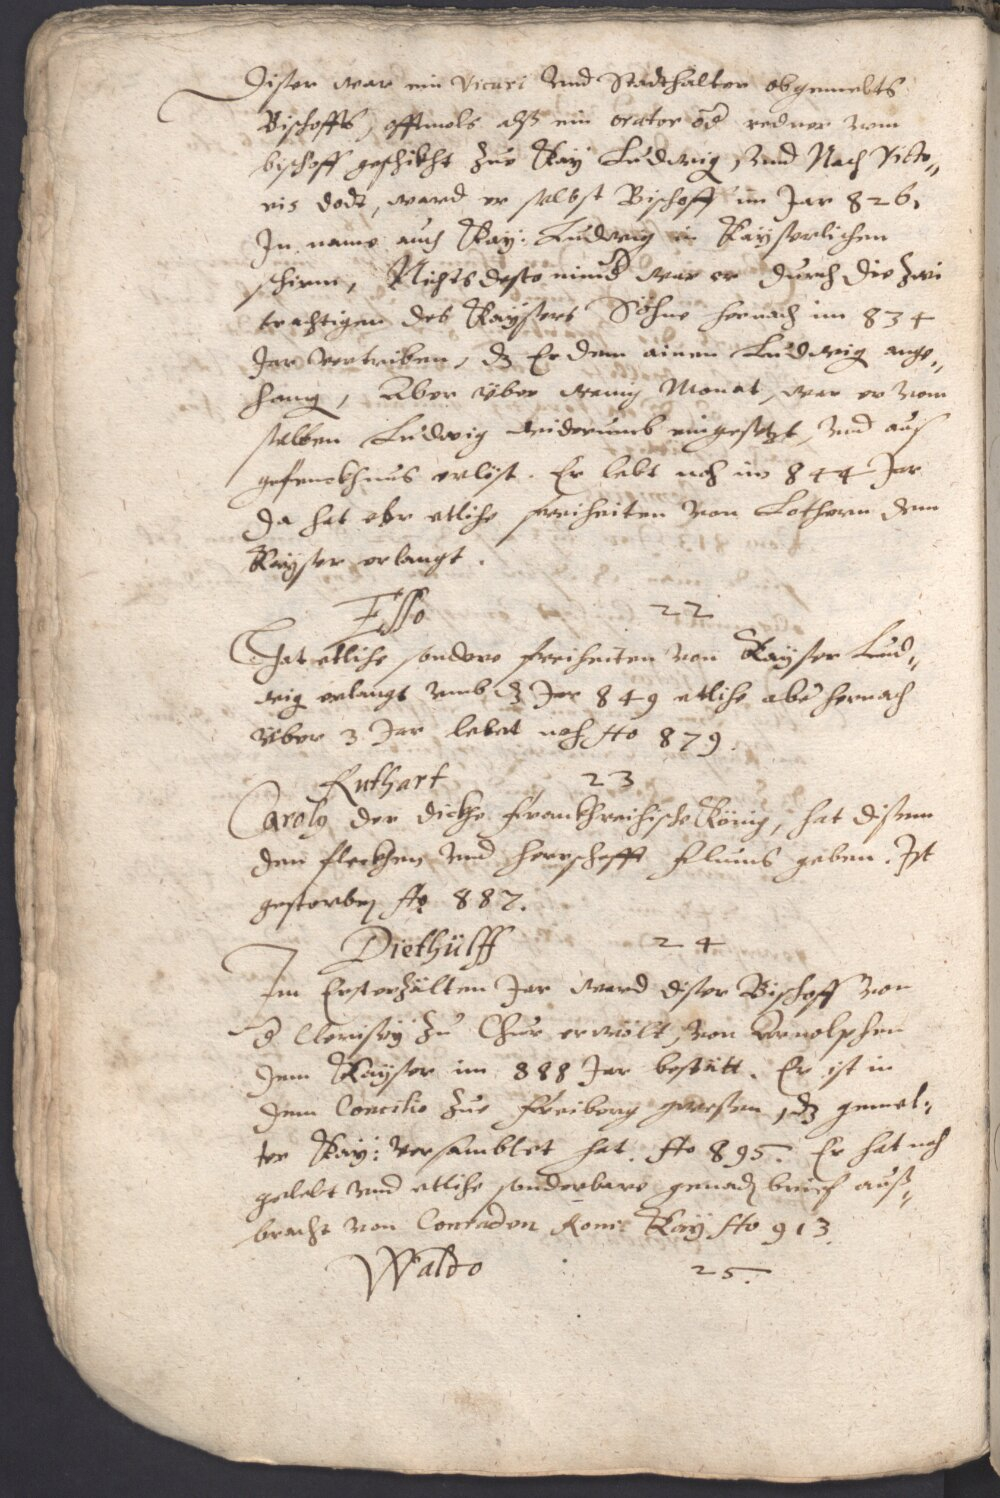 Diser war ein Vicari vnd Stadthalter obgemelts
Bischoffs, offtmols alß ein orator od redner vom
bischoff geschikht zue Kay Ludwig, vnd Nach Victo„
ris dodt, ward er selbst Bischoff im Jar 826,
In name auch Kay: Ludwig in Kayserlichen
schirm, Nichts desto mind war er durch die zwi
trachtigen des Kaysers Söhne hernach im 834
Jar vertriben, dz Er dem ainen Ludwig ange„
hang, Aber über wenig Monat, war er vom
selben Ludwig widerumb eingesetzt, vnd aus
gefenckhnus erlöst. Er lebt noch im 844 Jar
da hat ehr etliche freiheiten von Lothern dem
Kayser erlangt.
Esso 22
Hat etliche sondere freiheiten von Kayser Lud„
wig erlangt vmb dz Jar 849 etliche aber hernach
über 3 Jar lebet noch Ao 879.
Ruthart 23
Carolg der dickhe Franckhreichische König, hat disem
den fleckhen vnd herrschafft Flums geben. Ist
gestorben Ao 887.
Diethülff 24
Im Ersterzälten Jar ward diser Bischoff von
d Clerisey zu Chur erwölt, von Arnolphen
dem Kayser im 888 Jar bestätt. Er ist in
dem Concilio zue Freiborg gewesen, dz gemel„
ter Kay: versamblet hat. Ao 895. Er hat noch
gelebt vnd etliche sonderbare genad brief auß„
bracht von Conraden Rom: Kay Ao 913.
Waldo 25.